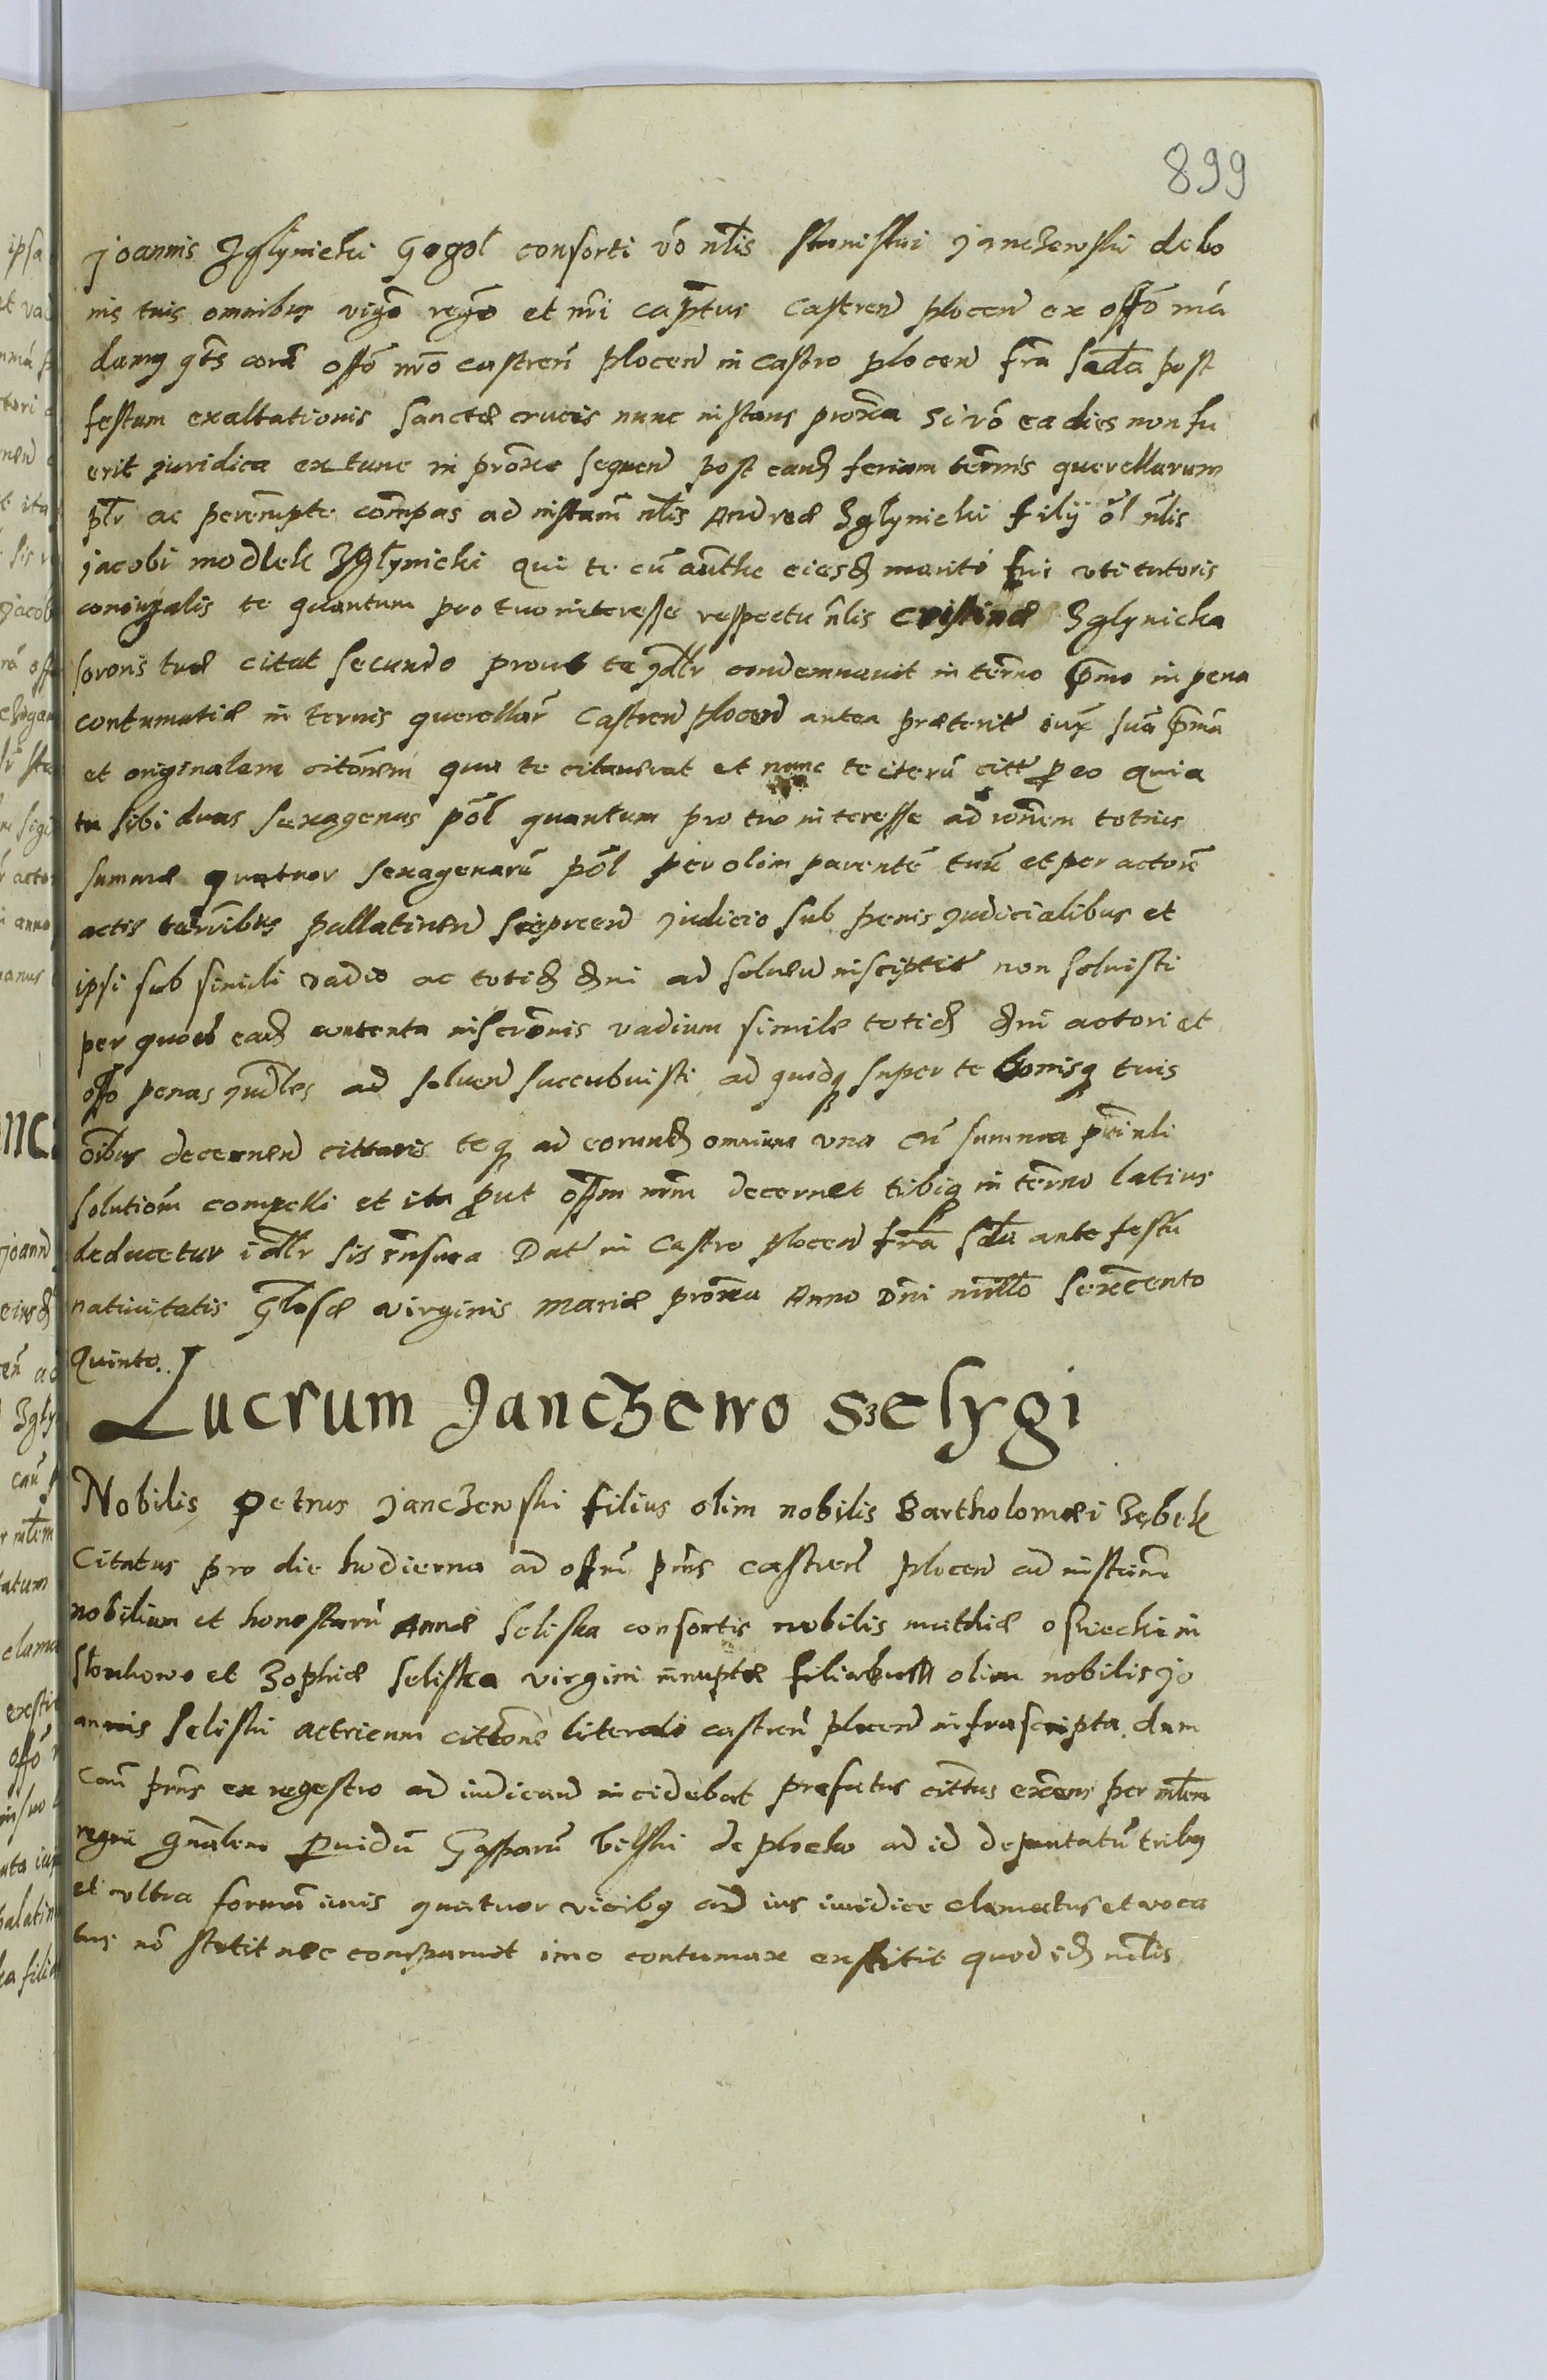 899
Joannis Zglynicki Gogol consorti vo nlis stanislai Janczewski de bo
nis tuis omnibus vigō regō et nri capttus castren plocen ex offō mā
damq qts corā offō nro castren plocen in castro plocen fra sada post
festum exaltationis sanctæ crucis nunc instans proxa Si vō ea dies non fu
erit juridica extunc in proxe sequen post eand feriam termis querellarum
pltr ac peremptē compas ad instam nlis Andreæ Zglynicki filij ol nlis
Jacobi modlek Zglynicki qui te cū authe eiusd mariti tui vti tutoris
coniugalis te quantum pro tuo interesse respectu nlis cristinæ Zglynicka
sororis tuæ citat secundo prout te jdltr condemnauit in termo pmo in pena
contumatiæ in termis querellar castren plocen antea præterit iux suā pmā
et originalem citōnem qua te citauerat et nunc te iterū citt p eo quia
tu sibi duas sexagenas pol quantum pro tuo interesse ad ronem totius
summæ quatuor sexagenarū pol per olim parentē tuū et per actorē
actis terribus pallatinen sieprcen judicio sub penis judicialibus et
ipsi sub simili vadio ac totid dni ad soluen insciptit non soluisti
per quod ead contenta inscronis vadium simile totid dni actori et
offo penas judles ad soluen succubuisti ad quidq super te bonisq tuis
oibus decernen cittaris teq ad eorund omnium vna cū summa princli
solutiōm compelli et ita put offm nrm decernet tibiq in termo latius
deducetur idltr sis rnsura Dat in castro plocen fra sda ante festū
natiuitatis glosæ virginis mariæ proxa Anno Dni millo sexcento
Quinto.
Lucrum Janczewo Szelygi
Nobilis Petrus Janczewski filius olim nobilis Bartholomæi Zębek
Citatus pro die hodierna ad offm prns castren plocen ad instam
nobilium et honestarū Annæ seliska consortis nobilis mathiæ osiecki in
slonkowo et Zophiæ seliska virgini innuptæ filiabus olim nobilis Jo
annis seliski actricum cittone literali castren plocen infrascripta. dum
cau prns ex regestro ad iudicand incidebat prefatus cittus exens per mltem
regni gnalem puidū Gasparū bilski de plocko ad id deputatū tribq
et vltra formā iuris quatuor vicibq ad ius iuridice clamatus et voca
tus nō stetit nec comparuit imo contumax exstitit quod id nlis